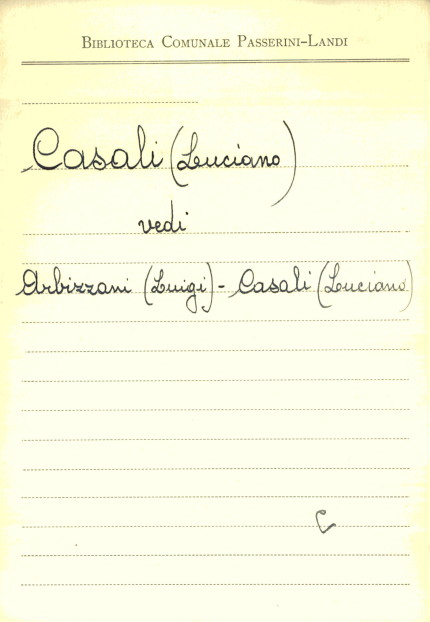 BIBLIOTECA COMUNALE PASSERINI-LANDI
Casali (Luciano)
vedi
Arbizzani (Luigi) - Casali (Luciano)
C